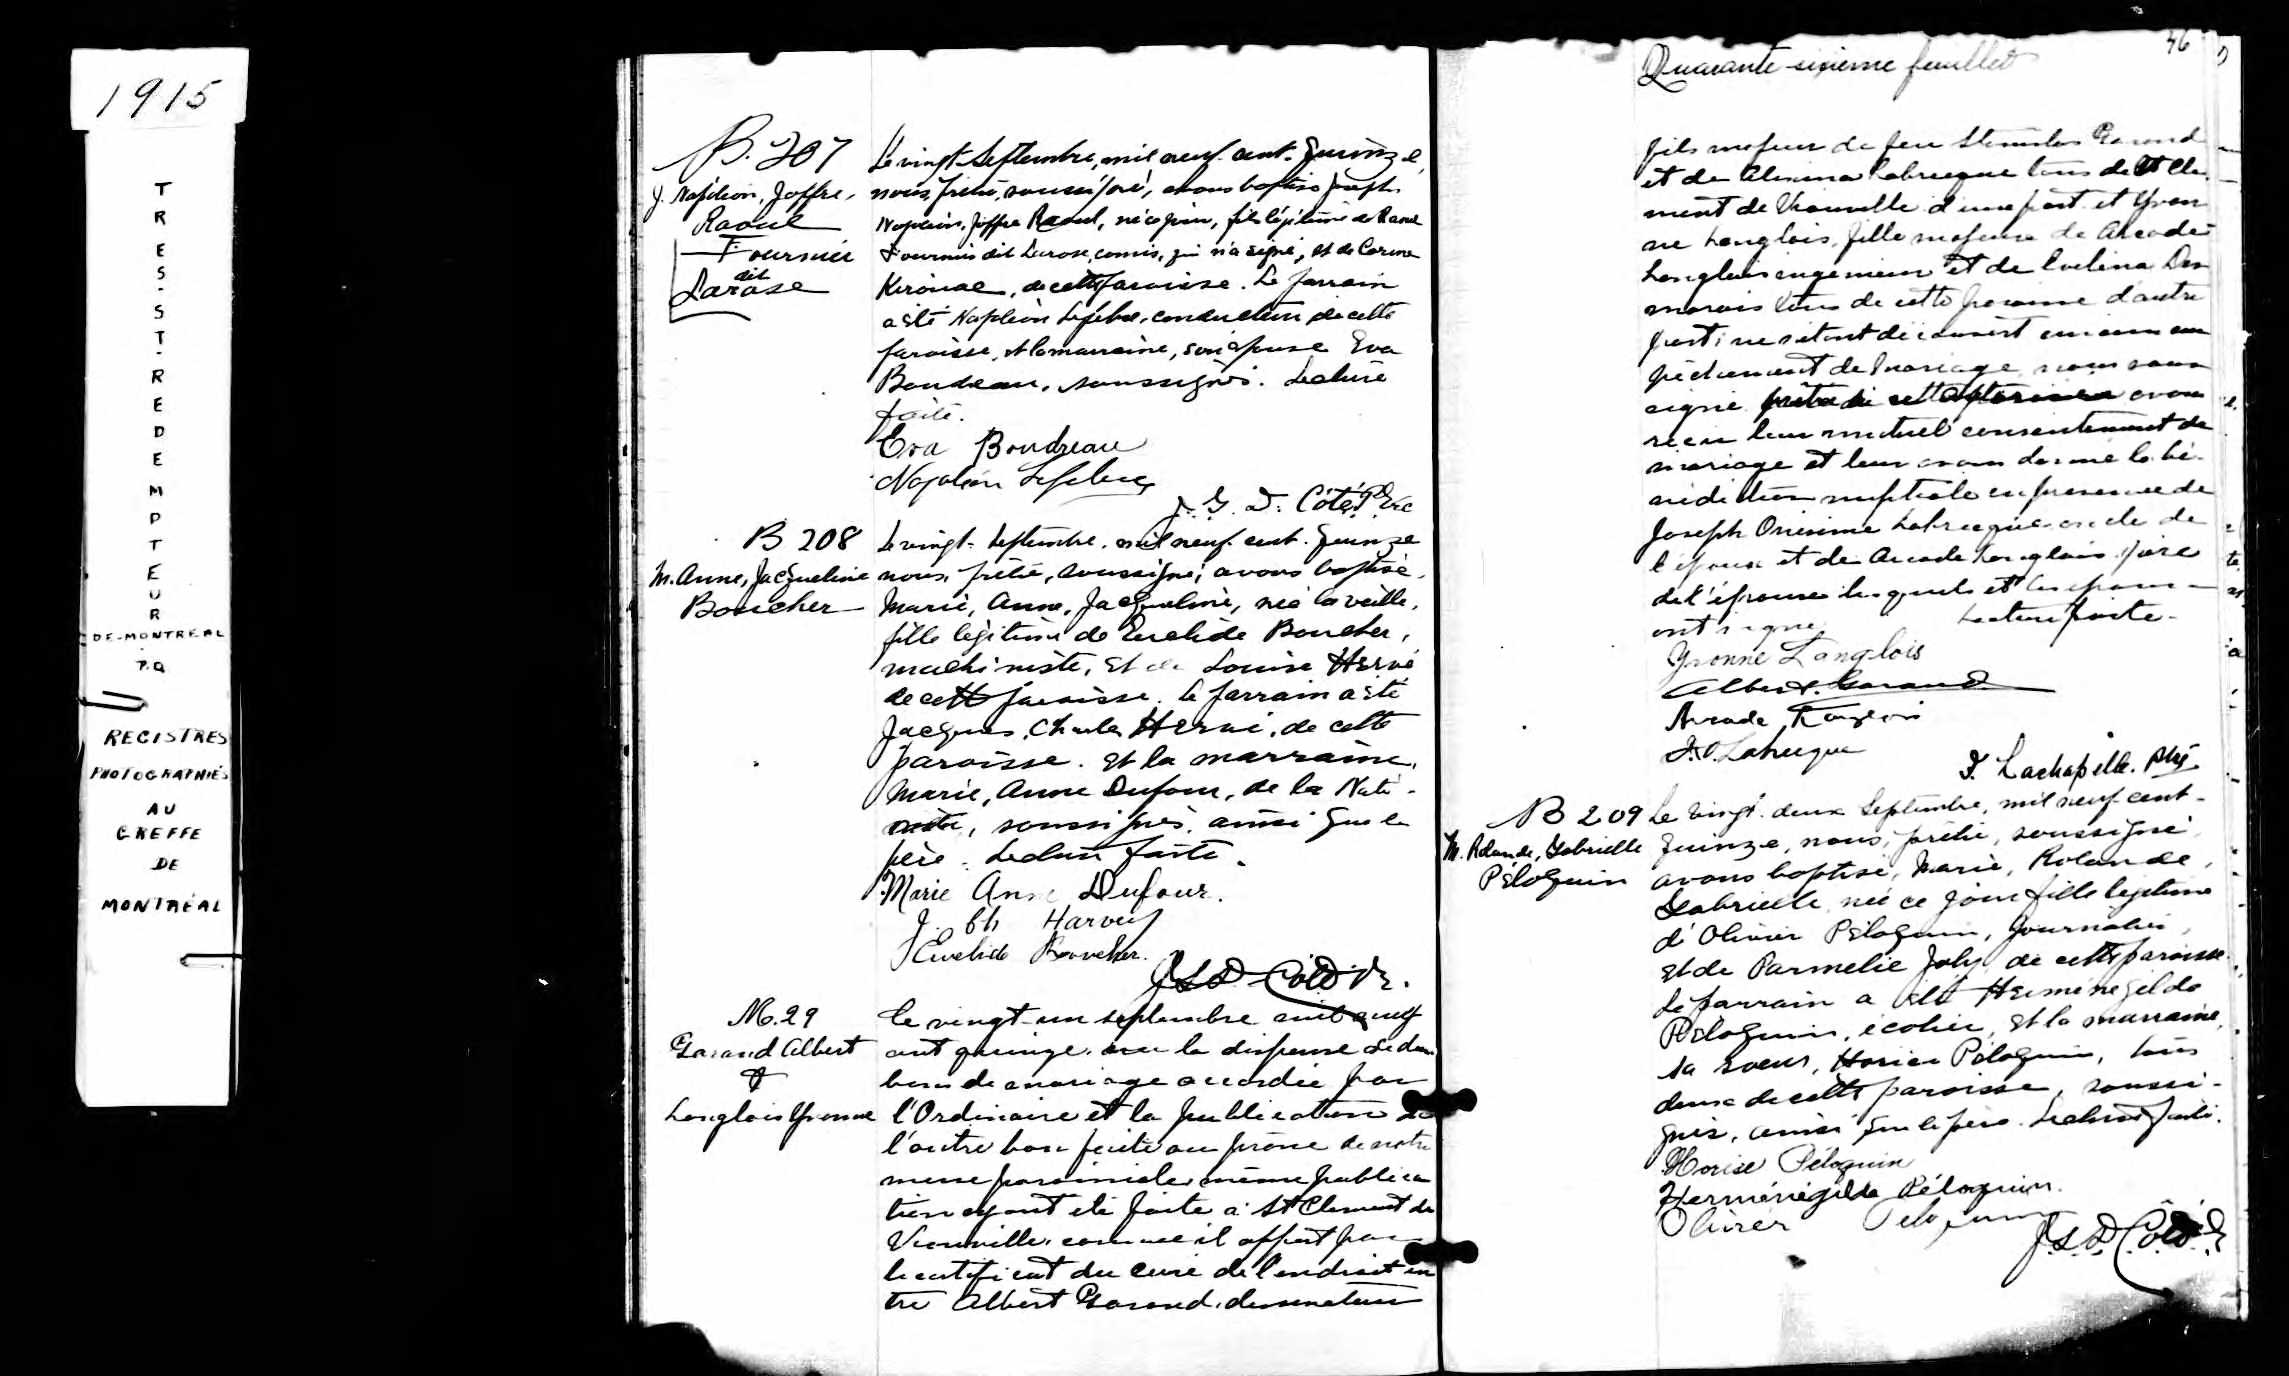 1915
TRES-ST-REDEMPTEUR
DE-MONTREAL
P.Q
REGISTRES
PHOTOGRAPHIÉS
AU
GREFFE
DE
MONTRÉAL
B. 207
J. Napoléon, Joffre,
Raoul
Fournier
dit
Larose
Le vingt Septembre, mil neuf cent quinze,
nous, prêtre, soussigné, avons baptisé Joseph
Napoléon, Joffre Raoul, né ce jour, fils légitime de Raoul
Fournier dit Larose, comis, qui n'a signé, et de Corinne
Kérouac, de cette paroisse. Le parrain
a été Napoléon Lefebvre, conducteur de cette
paroisse, et la marraine, son épouse Eva
Boudreau, soussignés. Lecture
faite.
Eva Boudreau
Napoléon Lefebvre
J. G. D. Côté Ptre
B 208
M. Anne, Jacqueline
Boucher
Le vingt Septembre, mil neuf cent quinze
nous, prêtre, soussigné, avons baptisé,
Marie, Anne, Jacqueline, née la veille,
fille légitime de Euclide Boucher,
machiniste, et de Louise Hervé
de cette paroisse. le parrain a été
Jacques, Charles Hervé, de cette
paroisse. et la marraine,
Marie, Anne Dufour, de la Nati-
vité, soussignés, ainsi que le
père. Lecture faite.
Marie Anne Dufour.
J. Ch Harvey
Euclide Boucher.
M. 29
Garand Albert
&
Langlois Yvonne
Le vingt-un septembre mil neuf
cent quinze, avec la dispense de deux
bans de mariage accordée par
l'Ordinaire et la publication de
l'autre ban faite au prône de notre
messe paroissiale, même publica
tion ayant été faite à St Clement de
Viauville, comme il appert par
le certificat du curé de l'endroit en
tre Albert Garand, dessinateur
46
Quarante-sixième feuillet
fils majeur de feu Stanislas Garand
et de Alexina Labrecque tous de St Cle
ment de Viauville d'une part et Yvon
ne Langlois, fille majeure de Arcade
Langlois ingenieur et de Evelina Des
marais tous de cette paroisse d'autre
part; ne s'étant découvert aucun em
pêchement de mariage nous sous
signé avons
reçu leur mutuel consentement de
mariage et leur avons donné la bé-
nédiction nuptiale en presence de
Joseph Onesime Labrecque oncle de
l'époux et de Arcade Langlois père
de l'épouse lesquels et les époux
ont signé. Lecture faite.
Yvonne Langlois
Albert Garand
Arcade Langlois
J.O. Labrecque
F. Lachapelle. ptre
B 209
M. Rolande, Gabrielle
Péloquin
Le vingt-deux Septembre, mil neuf cent-
quinze, nous, prêtre, soussigné,
avons baptisé, Marie, Rolande,
Gabrielle, née ce jour fille legitime
d'Olivier Péloquin, journalier,
et de Parmelie Joly, de cette paroisse.
Le parrain a été Herménégilde
Péloquin, écolier, et la marraine,
sa soeur, Péloquin, tous
deux de cette paroisse, soussi-
gnés, ainsi que le père. Lecture faite.
Péloquin
Herménégilde Péloquin.
Olivier Peloquin